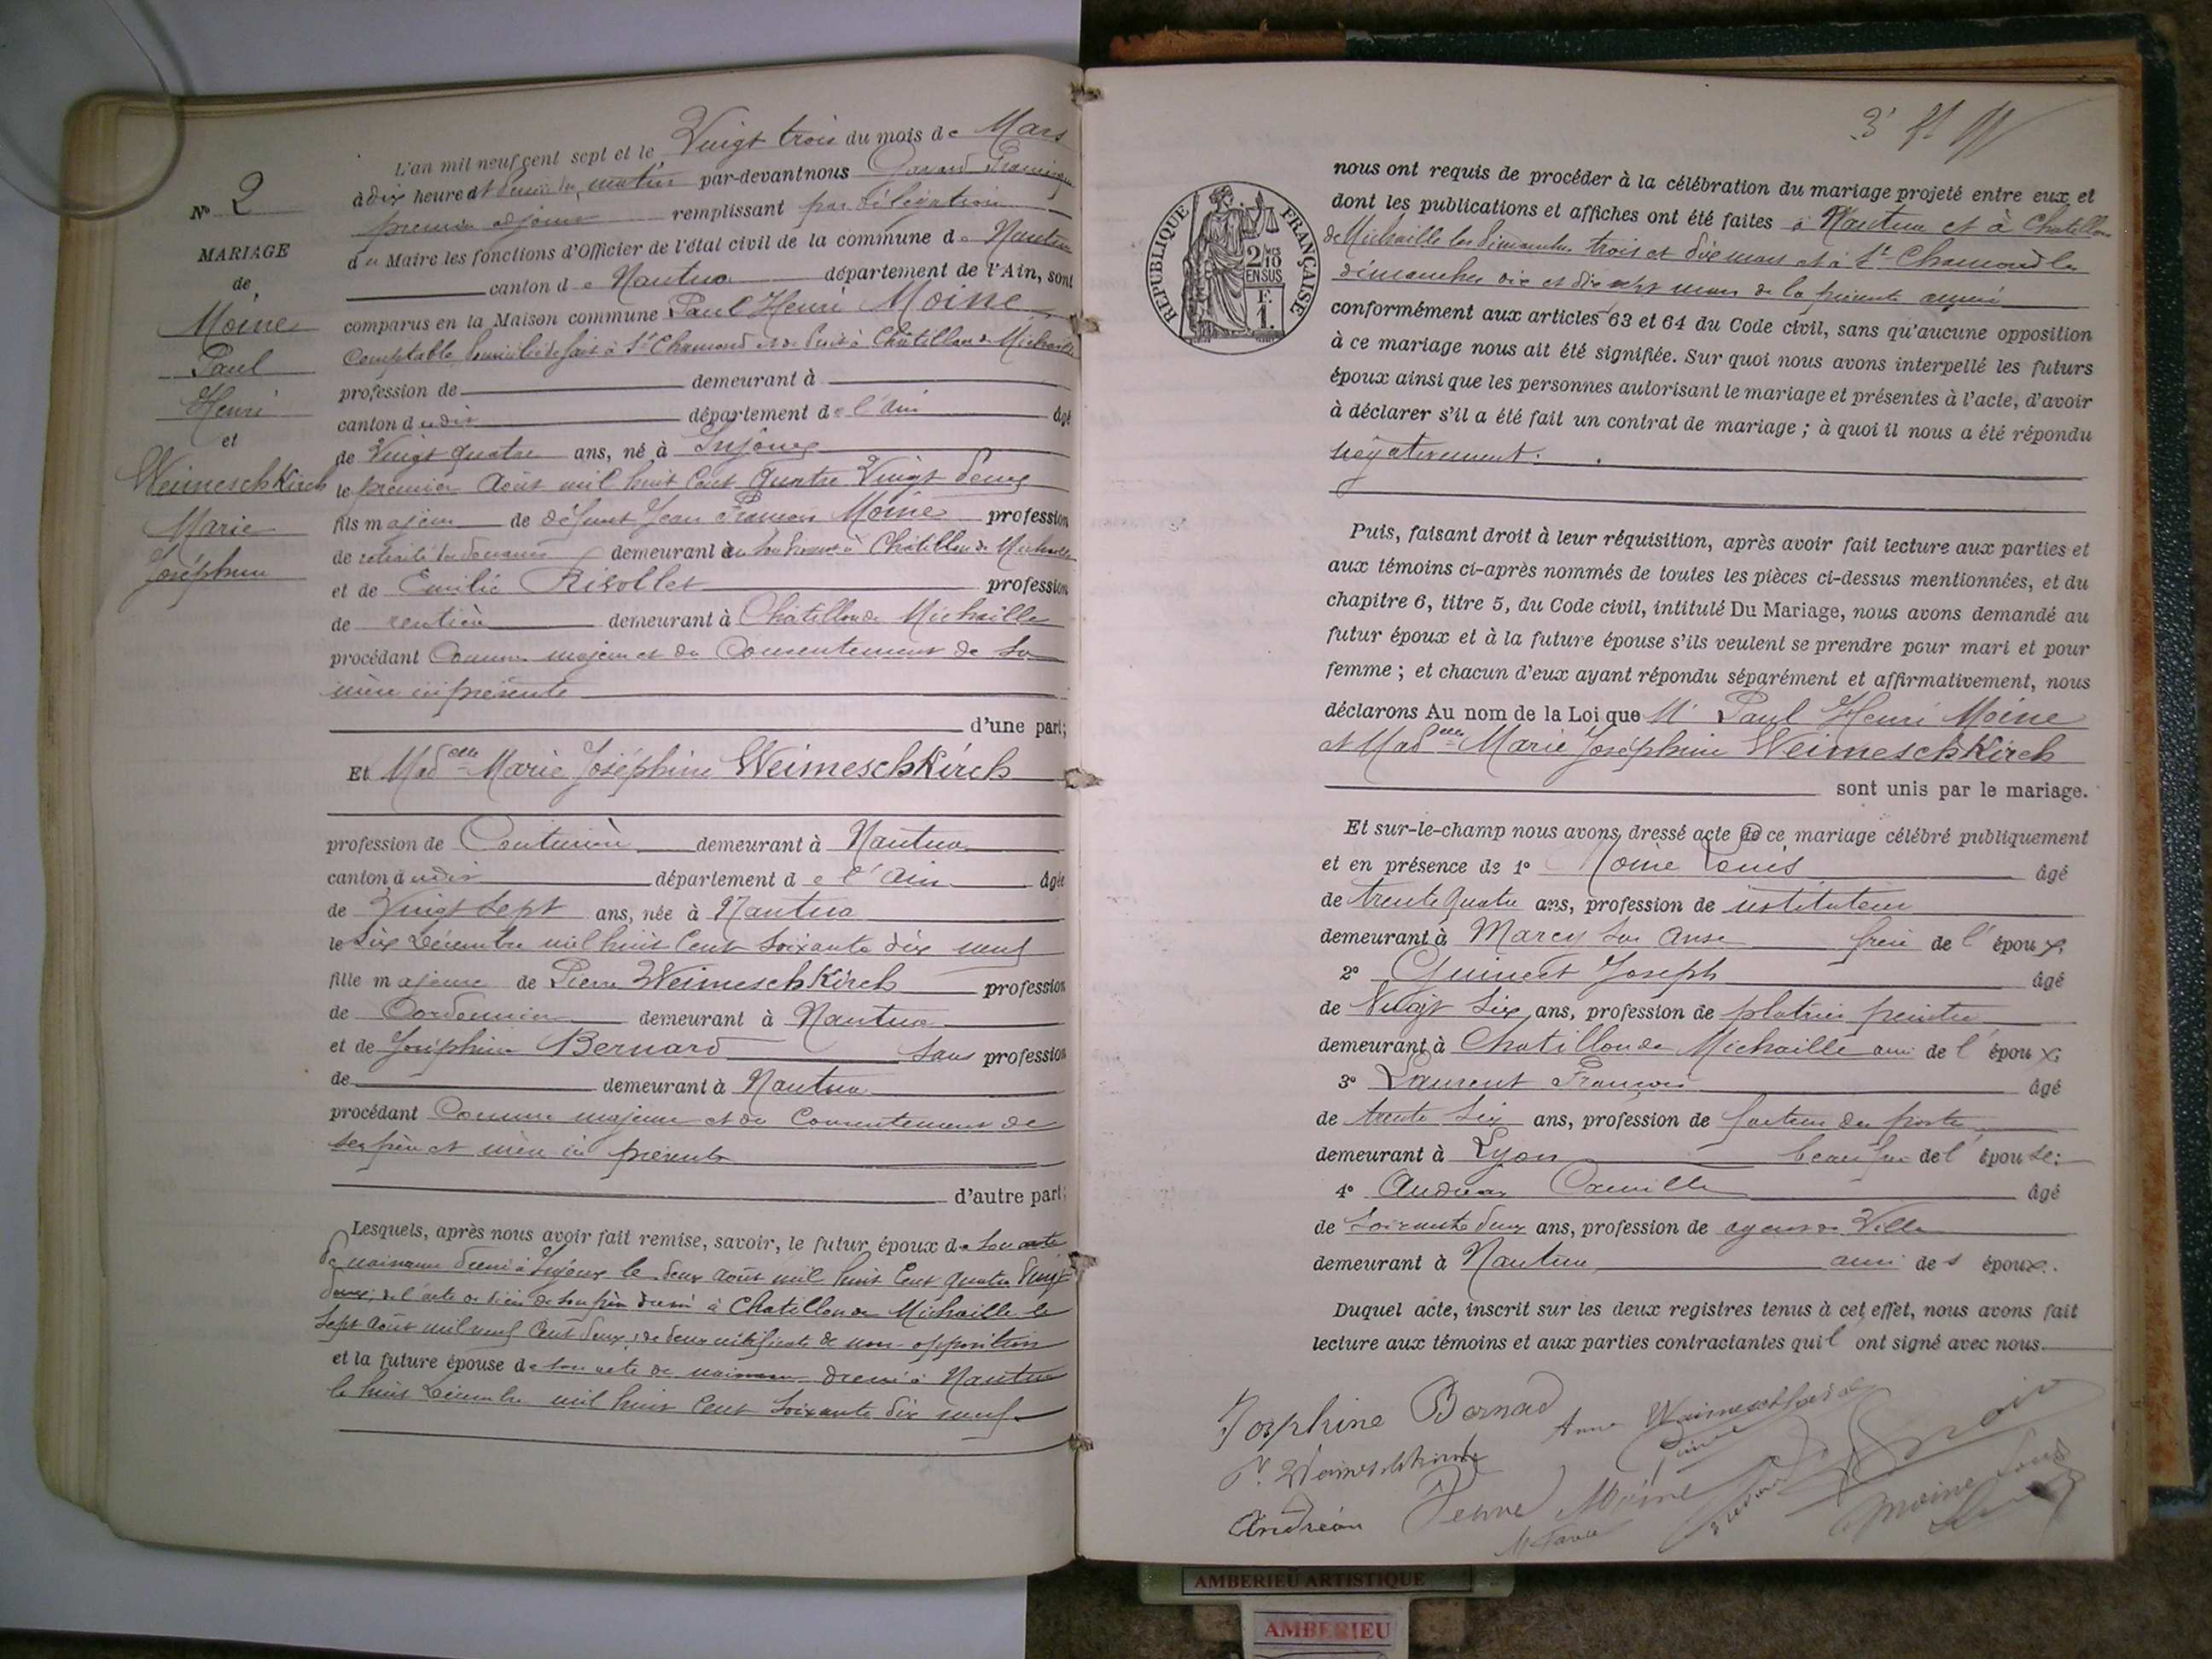 N° 2
MARIAGE
de
Moine
Paul
Henri
et
Weimeschkirch
Marie
Joséphine
L'an mil neuf cent sept et le Vingt trois du mois de Mars
à dix heures du matin par-devant nous
premier adjoint remplissant par délégation
du Maire les fonctions d'Officier de l'état civil de la commune de Nantua
canton de Nantua département de l'Ain, sont
comparus en la Maison commune Paul Henri Moine
Comptable, domicilié de fait à St Chamond et de droit à Châtillon de Michaille
profession de demeurant à
canton dudit département de l'Ain âgé
de Vingt quatre ans, né à Injoux
le premier Août mil huit cent quatre Vingt deux
fils majeur de défunt Jean François Moine profession
de retraité des douanes demeurant à Châtillon de Michaille
et de Emilie Rivollet profession
de rentière demeurant à Châtillon de Michaille
procédant Comme majeur et du Consentement de sa
mère ici présente
d'une part;
Et Mad elle Marie Joséphine Weimeschkirch
profession de Couturière demeurant à Nantua
canton dudit département de l'Ain âgée
de Vingt sept ans, née à Nantua
le six Décembre mil huit cent soixante dix neuf
fille majeure de Pierre Weimeschkirch profession
de Cordonnier demeurant à Nantua
et de Joséphine Bernard sans profession
de demeurant à Nantua
procédant Comme majeure et du Consentement de
ses père et mère ici présents
d'autre part;
Lesquels, après nous avoir fait remise, savoir, le futur époux de son acte
de naissance dressé à Injoux le deux août mil huit cent quatre vingt
deux; de l'acte de décès de son père dressé à Chatillon de Michaille le
sept août mil neuf cent deux; de deux certificats de non-opposition
et la future épouse de son acte de naissance dressé à Nantua
le huit Décembre mil huit cent soixante dix neuf
RÉPUBLIQUE FRANÇAISE
2/10 EN SUS
F.
1.
nous ont requis de procéder à la célébration du mariage projeté entre eux et
dont les publications et affiches ont été faites à Nantua et à Chatillon
de Michaille les dimanches trois et dix mars et à St Chamond les
dimanches dix et dix sept mars de la présente année
conformément aux articles 63 et 64 du Code civil, sans qu'aucune opposition
à ce mariage nous ait été signifiée. Sur quoi nous avons interpellé les futurs
époux ainsi que les personnes autorisant le mariage et présentes à l'acte, d'avoir
à déclarer s'il a été fait un contrat de mariage; à quoi il nous a été répondu
négativement.
Puis, faisant droit à leur réquisition, après avoir fait lecture aux parties et
aux témoins ci-après nommés de toutes les pièces ci-dessus mentionnées, et du
chapitre 6, titre 5, du Code civil, intitulé Du Mariage, nous avons demandé au
futur époux et à la future épouse s'ils veulent se prendre pour mari et pour
femme; et chacun d'eux ayant répondu séparément et affirmativement, nous
déclarons Au nom de la Loi que Mr Paul Henri Moine
et Mad elle Marie Joséphine Weimeschkirch
sont unis par le mariage.
Et sur-le-champ nous avons dressé acte de ce mariage célébré publiquement
et en présence de 1° Moine Louis âgé
de trente quatre ans, profession de instituteur
demeurant à Marcy sur Anse frère de l'époux;
2° Joseph âgé
de Vingt six ans, profession de platrier peintre
demeurant à Chatillon de Michaille ami de l'époux;
3° Laurent François âgé
de trente six ans, profession de facteur des postes
demeurant à Lyon beau frère de l'épouse;
4° Andréan Camille âgé
de soixante deux ans, profession de agent de Ville
demeurant à Nantua ami des époux.
Duquel acte, inscrit sur les deux registres tenus à cet effet, nous avons fait
lecture aux témoins et aux parties contractantes qui ont signé avec nous.
Josphine Bernad
Moine
Andréan
Moine Louis
AMBERIEU ARTISTIQUE
AMBERIEU